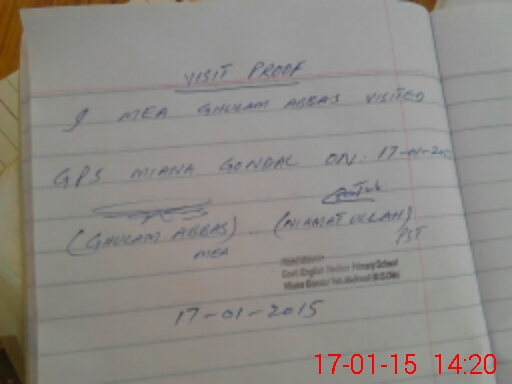 VISIT PROOF
I MEA GHULAM ABBAS VISITED
GPS MIANA GONDAL ON: 17-01-20
(GHULAM ABBAS) (NIAMAT ULLAH)
MEA PST
Govt. English Medium Primary School
Miana Gondal Teh. Malakwal (M.B.Din)
17-01-2015
17-01-15 14:20